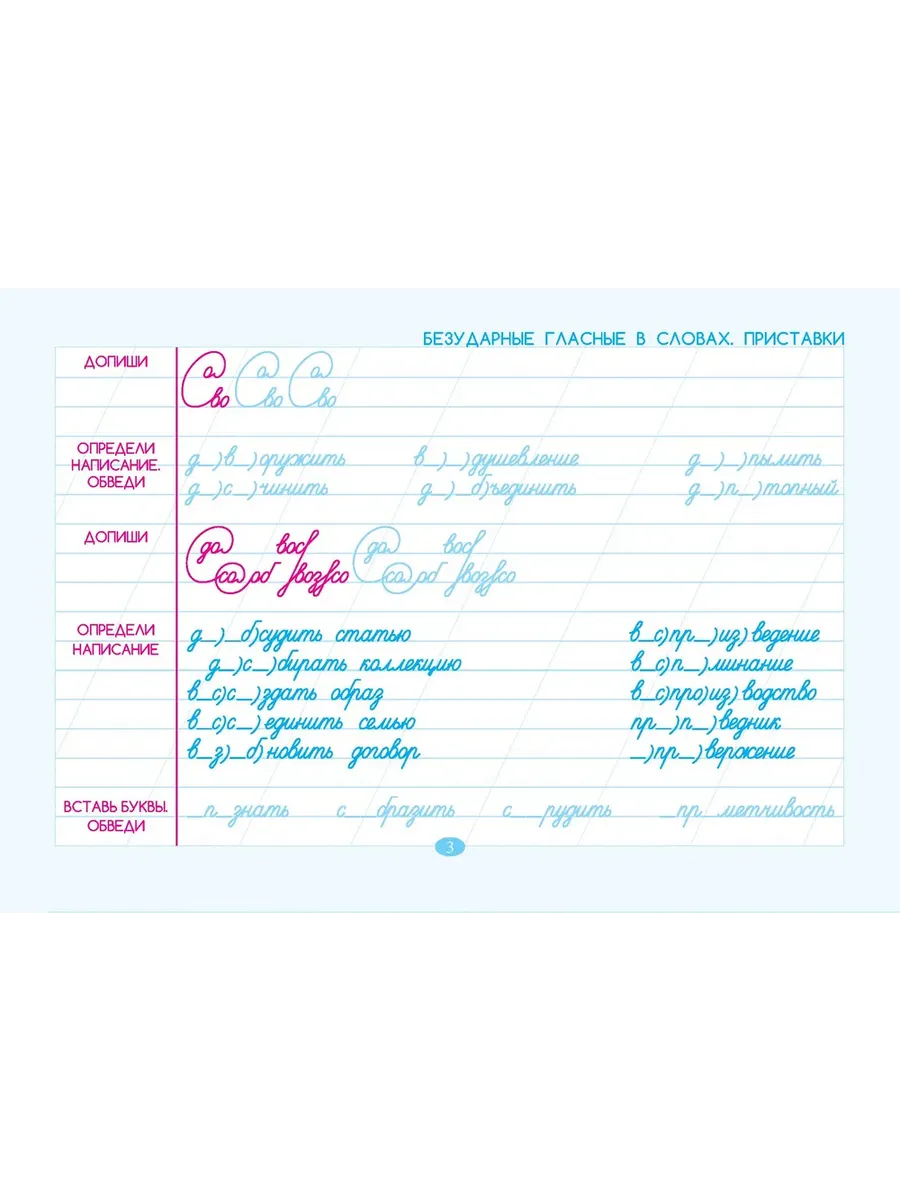 БЕЗУДАРНЫЕ ГЛАСНЫЕ В СЛОВАХ. ПРИСТАВКИ
ДОПИШИ
о о о
во во во
ОПРЕДЕЛИ НАПИСАНИЕ. ОБВЕДИ
д_)в_)оружить в_)_)душевление д_)_)пылить
д_)с_)чинить д_)_б)ъединить д_)п_)топный
ДОПИШИ
до вос до вос
со об воз со со об воз со
ОПРЕДЕЛИ НАПИСАНИЕ
д_)_б)судить статью в_с)пр_)из)ведение
д_)с_)бирать коллекцию в_с)п_)минание
в_с)с_)здать образ в_с)про)из)водство
в_с)с_)единить семью пр_)п_)ведник
в_з)_б)новить договор _)пр_)вержение
ВСТАВЬ БУКВЫ. ОБВЕДИ
_п_знать с__бразить с__рудить _пр_метчивость
3